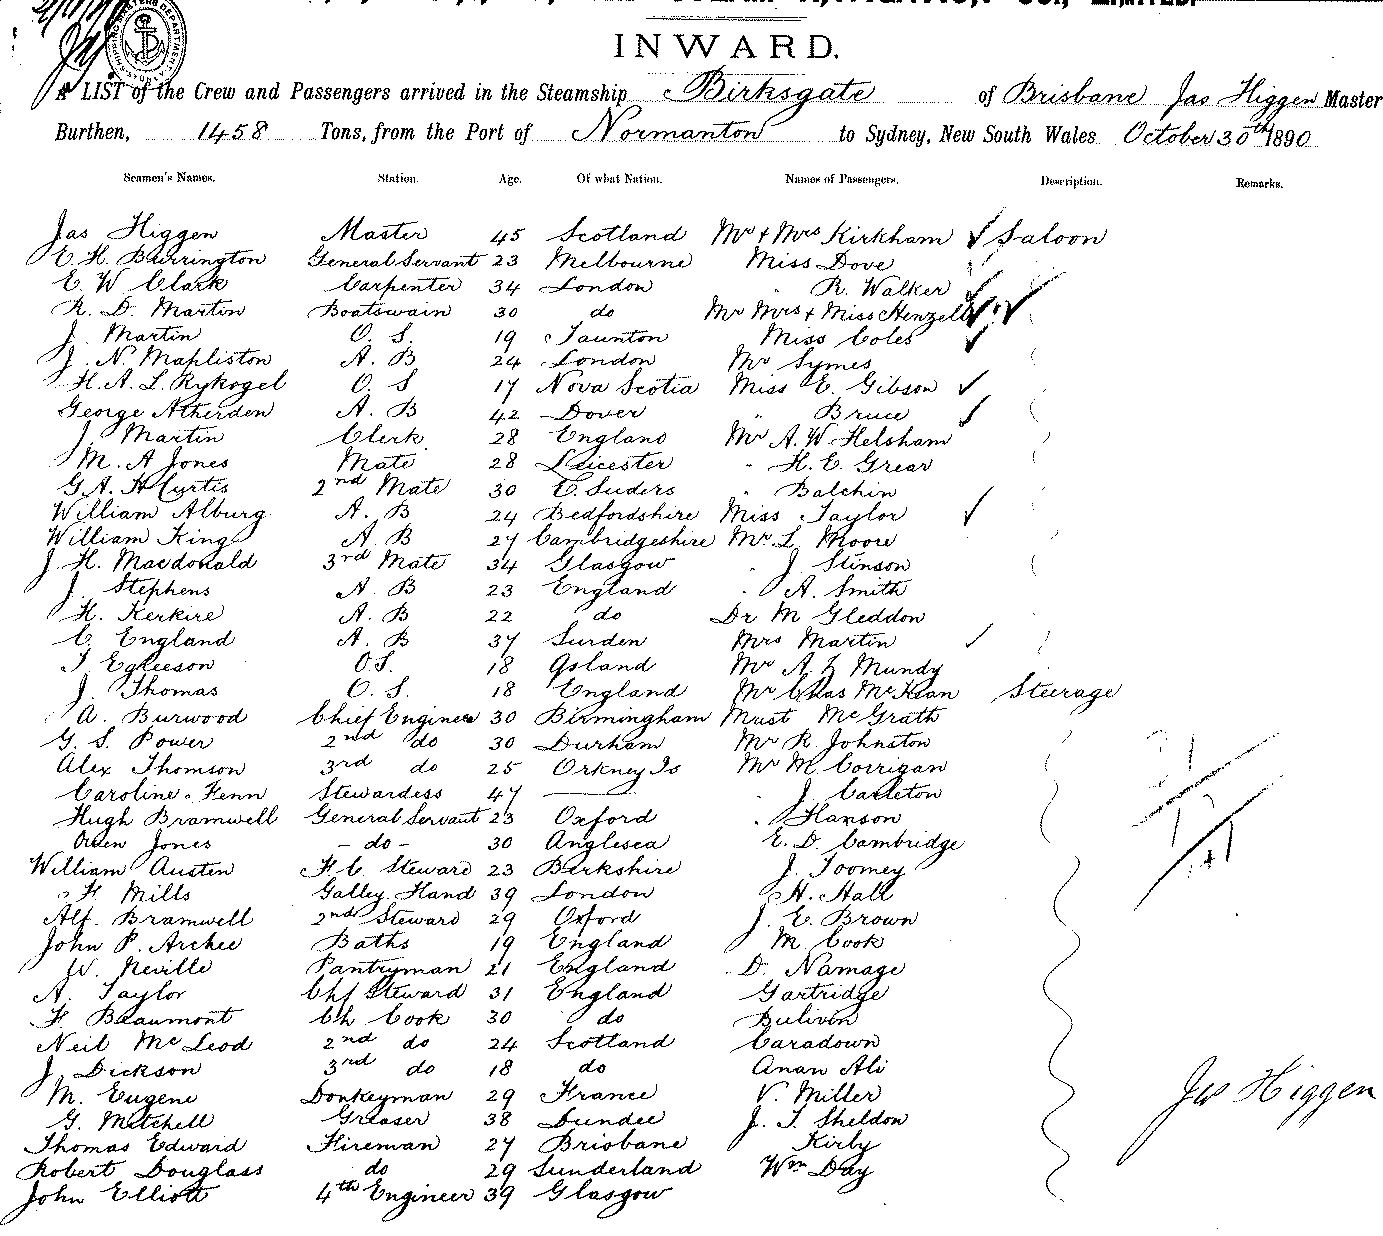 INWARD.
A LIST of the Crew and Passengers arrived in the Steamship Birksgate of Brisbane Jas Higgen Master
Burthen, 1458 Tons, from the Port of Normanton to Sydney, New South Wales October 30th 1890
Seamen's Names. Station. Age. Of what Nation. Names of Passengers. Description. Remarks.
Jas Higgen Master 45 Scotland Mr & Mrs Kirkham Saloon
E H Burrington General Servant 23 Melbourne Miss Dove
E. W Clark Carpenter 34 London " R. Walker
R. D. Martin Boatswain 30 do Mr Mrs & Miss Henzell
J. Martin O. S. 19 Taunton Miss Coles
J. N. Mapliston A. B 24 London Mr Symes
H. A. L. Rykogel O. S 17 Nova Scotia Miss E. Gibson
George Atherden A. B 42 Dover " Bruce
J. Martin Clerk 28 England Mr A. W Helsham
M. A Jones Mate 28 Leicester " H. E. Grear
G. A. H Curtis 2nd Mate 30 " Balchin
William Alburg A. B 24 Bedfordshire Miss Taylor
William King A. B 27 Cambridgeshire Mr L Moore
J H. Macdonald 3rd Mate 34 Glasgow " J Stinson
J. Stephens A. B 23 England " A. Smith
H. Kerkire A. B 22 do Dr M Gleddon
C England A. B 37 Mrs Martin
O.S. 18 Mr A. Mundy
J. Thomas O. S. 18 England Mr Chas McKean Steerage
A. Burwood Chief Engineer 30 Birmingham Mast McGrath
G. S. Power 2nd do 30 Durham Mr R. Johnston
Alex Thomson 3rd do 25 Orkney Is Mr M. Corrigan
Caroline Fenn Stewardess 47 — " J. Carleton
Hugh Bramwell General Servant 23 Oxford " Hanson
Owen Jones - do - 30 Anglesea E. D. Cambridge
William Austen F. C. Steward 23 Berkshire J. Toomey
F. Mills Galley Hand 39 London H. Hall
Alf. Bramwell 2nd Steward 29 Oxford J. E. Brown
John P. Archee Baths 19 England M. Cook
W. Neville Pantryman 21 England D. Namage
A. Taylor Chf Steward 31 England Gartridge
F. Beaumont Ch Cook 30 do Bulivin
Neil McLeod 2nd do 24 Scotland Caradown
J. Dickson 3rd do 18 do Anan Ali
M. Eugene Donkeyman 29 France V. Miller
G. Mitchell Greaser 38 Dundee J. T. Sheldon
Thomas Edward Fireman 27 Brisbane Kirby
Robert Douglass do 29 Sunderland Wm Day
John Elliott 4th Engineer 39 Glasgow
Jas Higgen